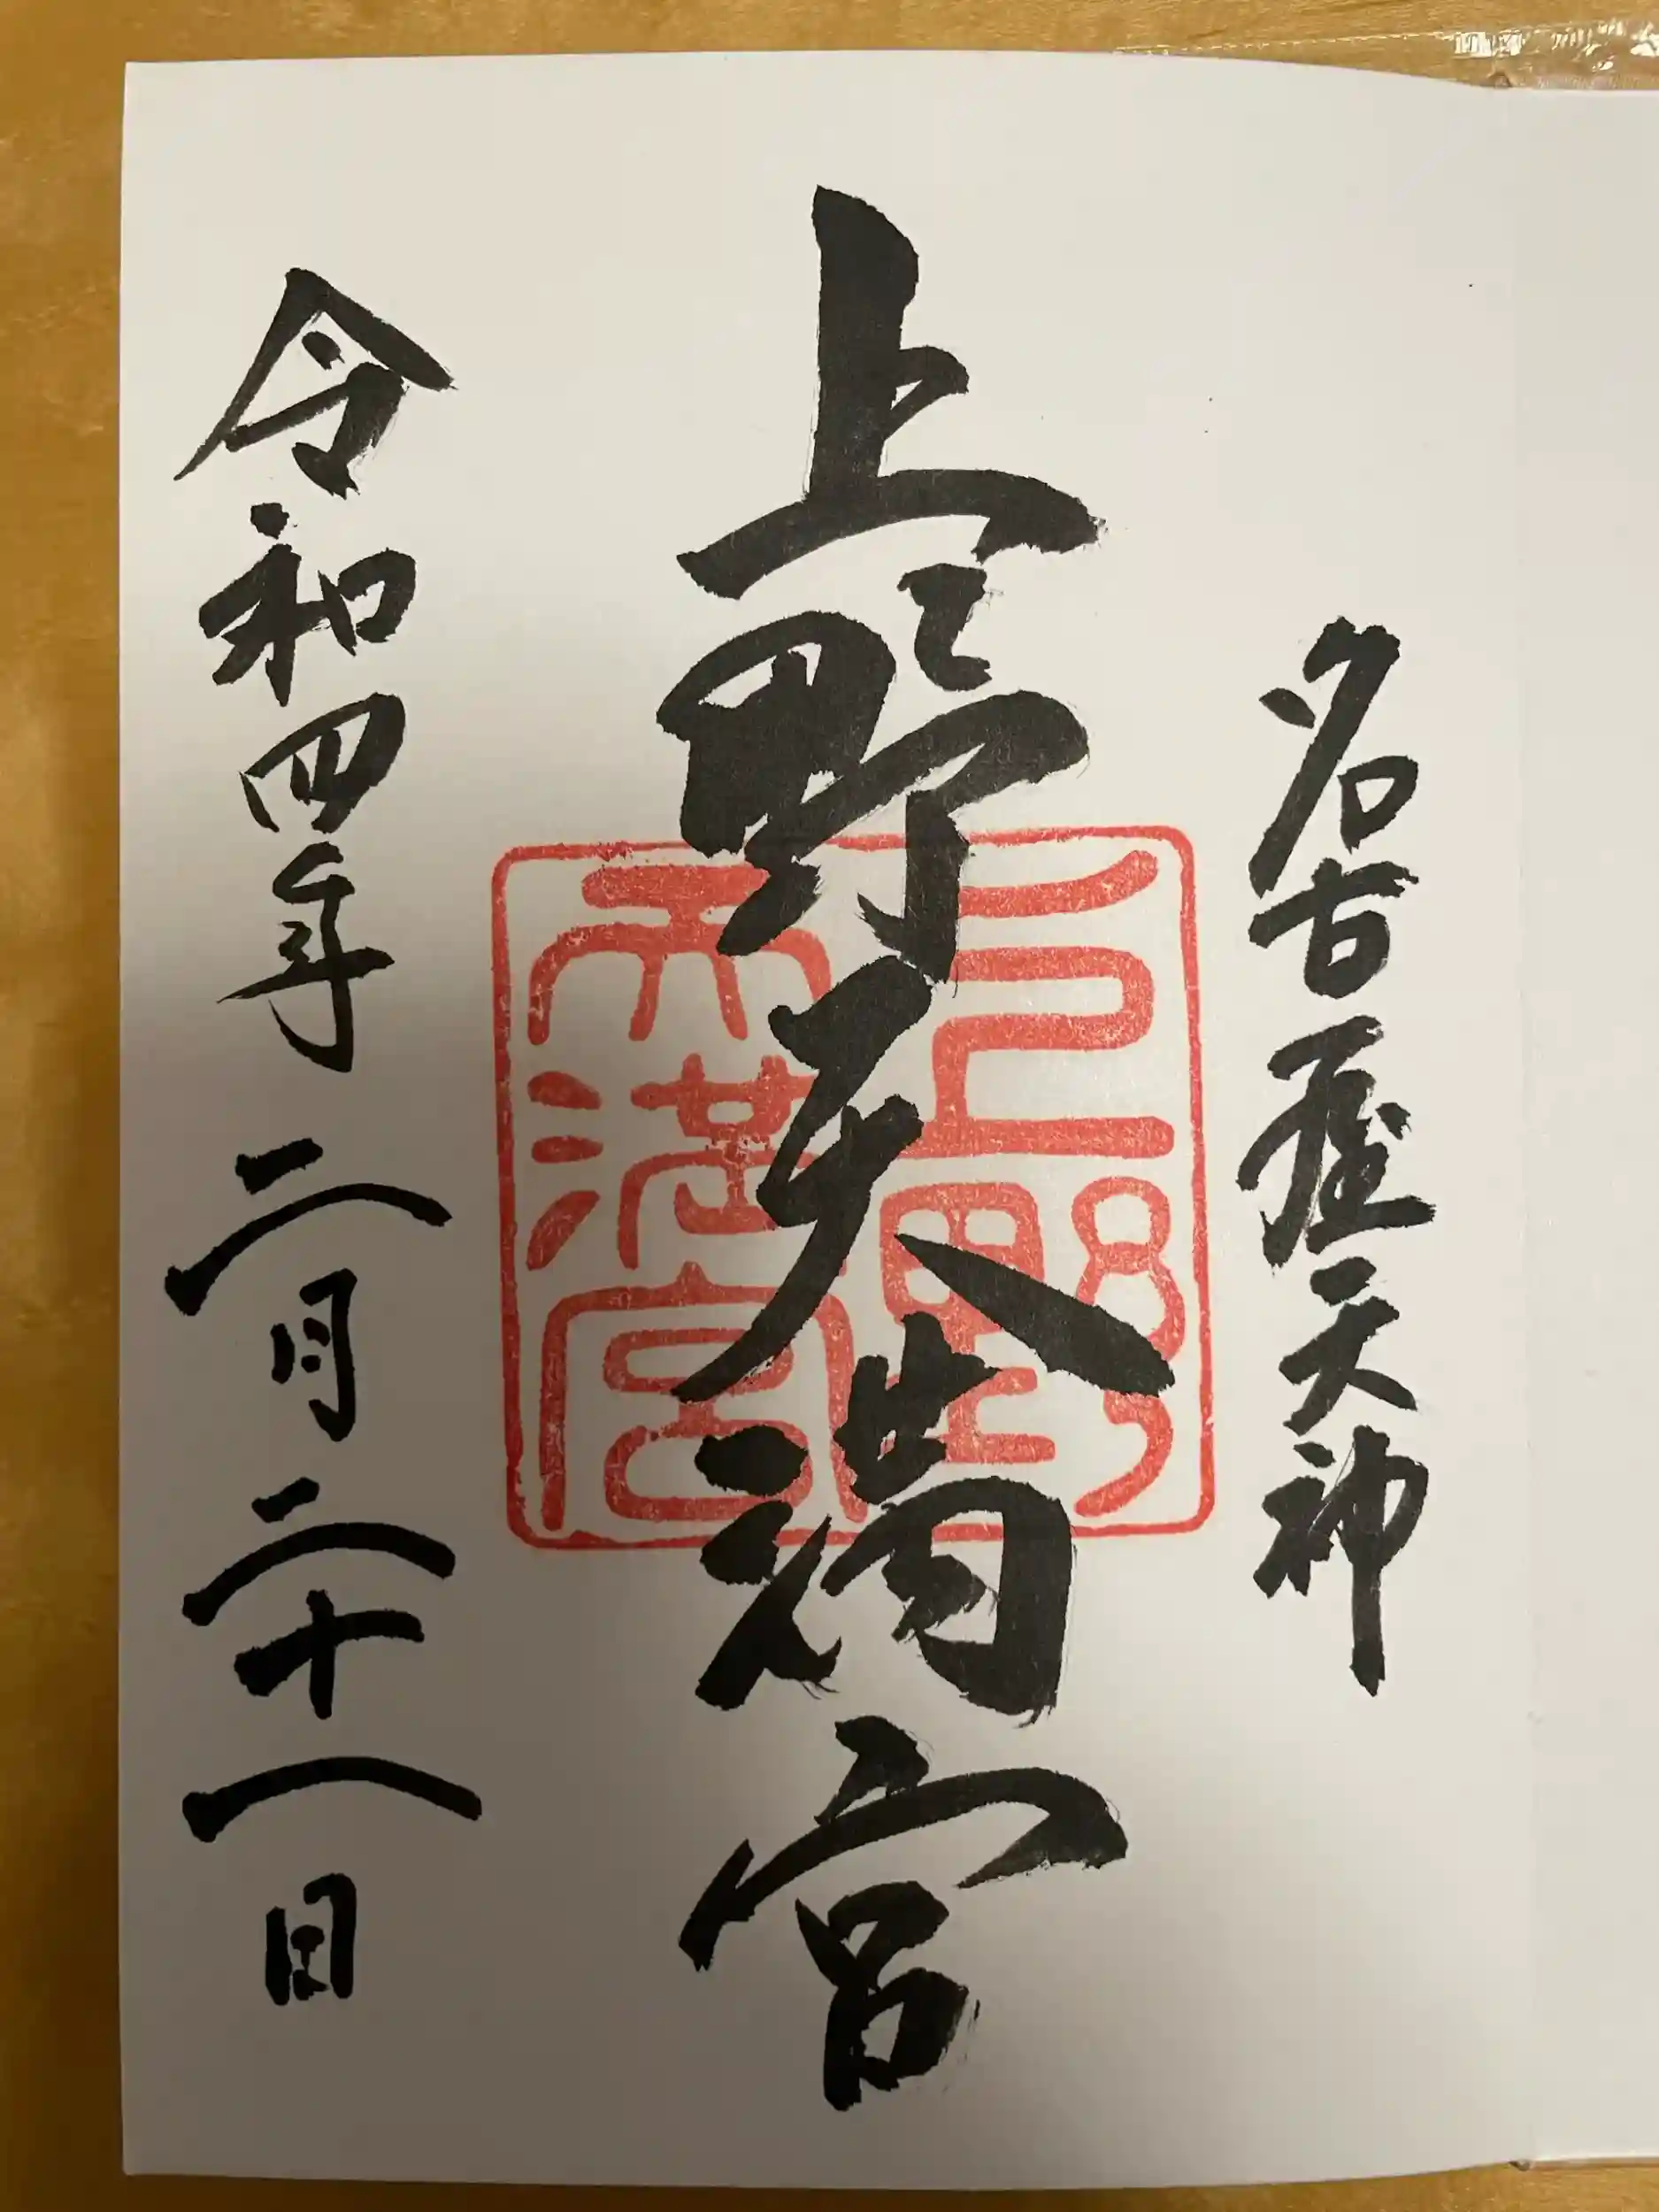 名古屋天神
上野天満宮
上野
天満宮
令和四年二月二十一日